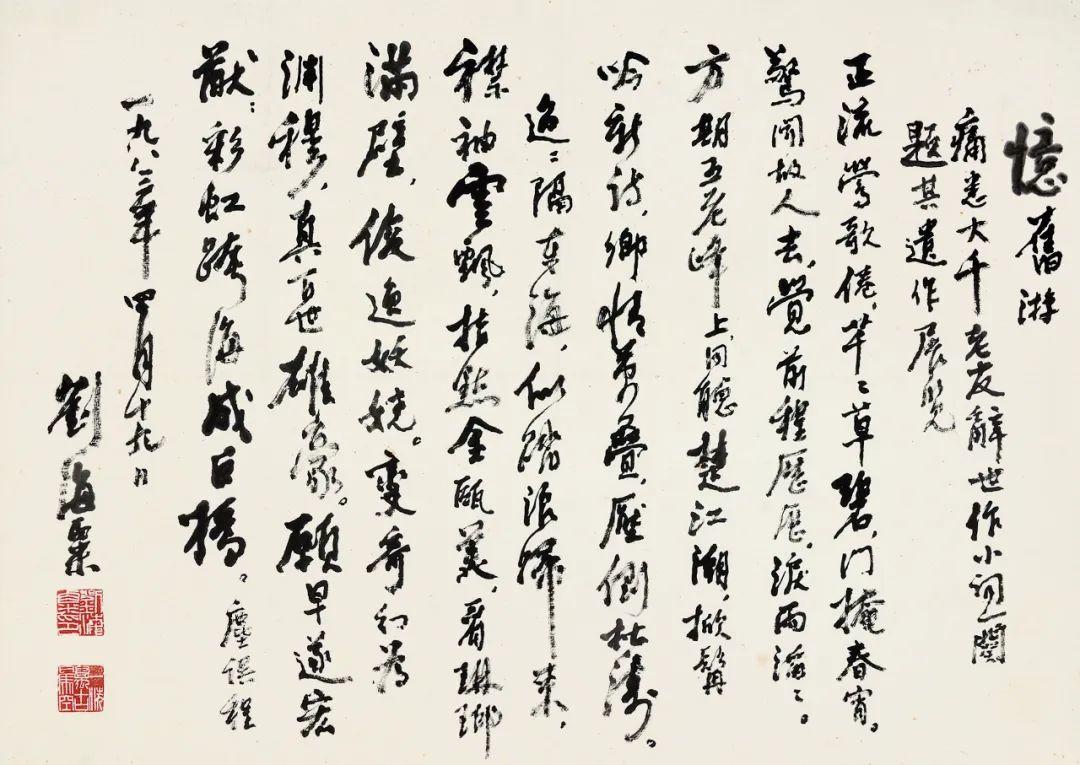 憶舊游
痛悉大千老友辭世作小詞一闋
題其遺作展覽
正流鶯歌倦，芊芊草碧，門掩春宵。
驚聞故人去，覺前程歷歷，淚雨滔滔。
方期五老峰上，同聽楚江潮，掀髯
吟新詩，鄉情萬疊，壓倒松濤。
迢迢隔東海，似踏浪歸來，
襟袖雲飄，指點金甌美，看琳瑯
滿壁，俊逸妖嬈。變奇幻為
淵穆，真百世雄豪。願早遂宏
猷：彩虹跨海成巨橋。塵誤程
一九八三年四月十九日
劉海粟
劉海粟印